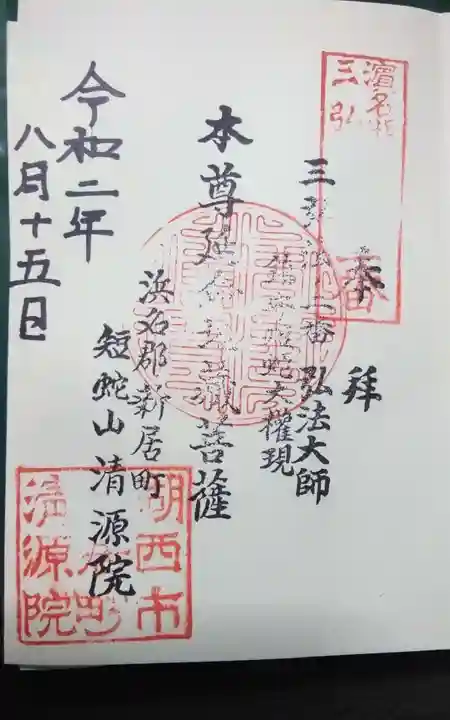 濱名
三弘
番
奉拜
二番 弘法大師
蛇大權現
本尊延命地藏菩薩
浜名郡新居町
短蛇山清源院
令和二年
八月十五日
湖西市
町
清源院